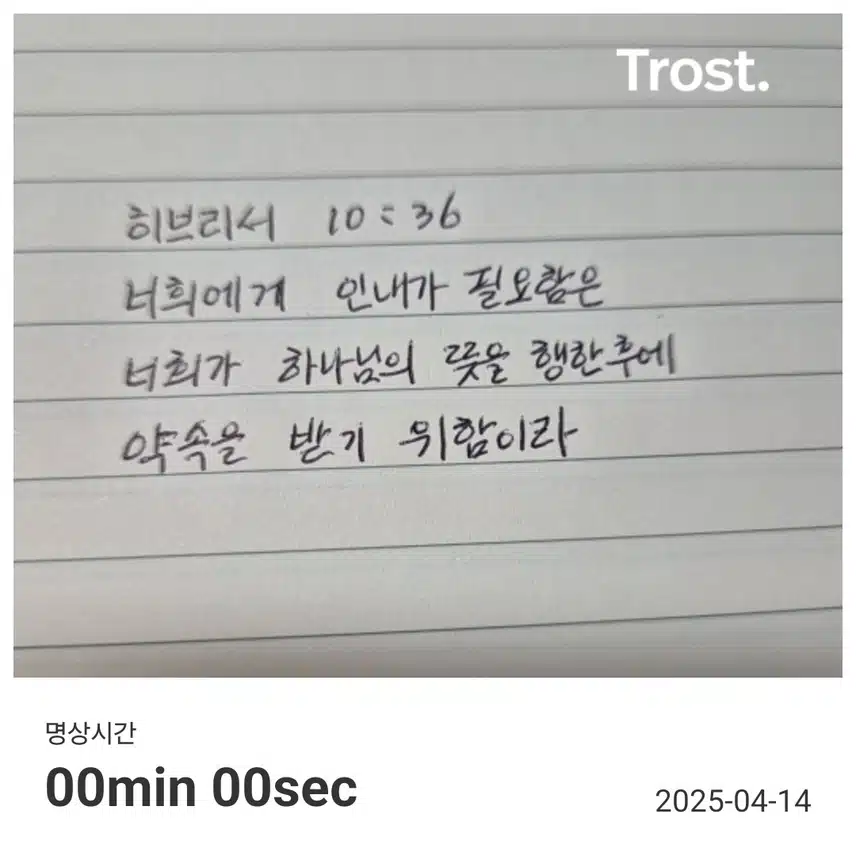 Trost.
히브리서 10:36
너희에게 인내가 필요함은
너희가 하나님의 뜻을 행한후에
약속을 받기 위함이라
명상시간
00min 00sec
2025-04-14